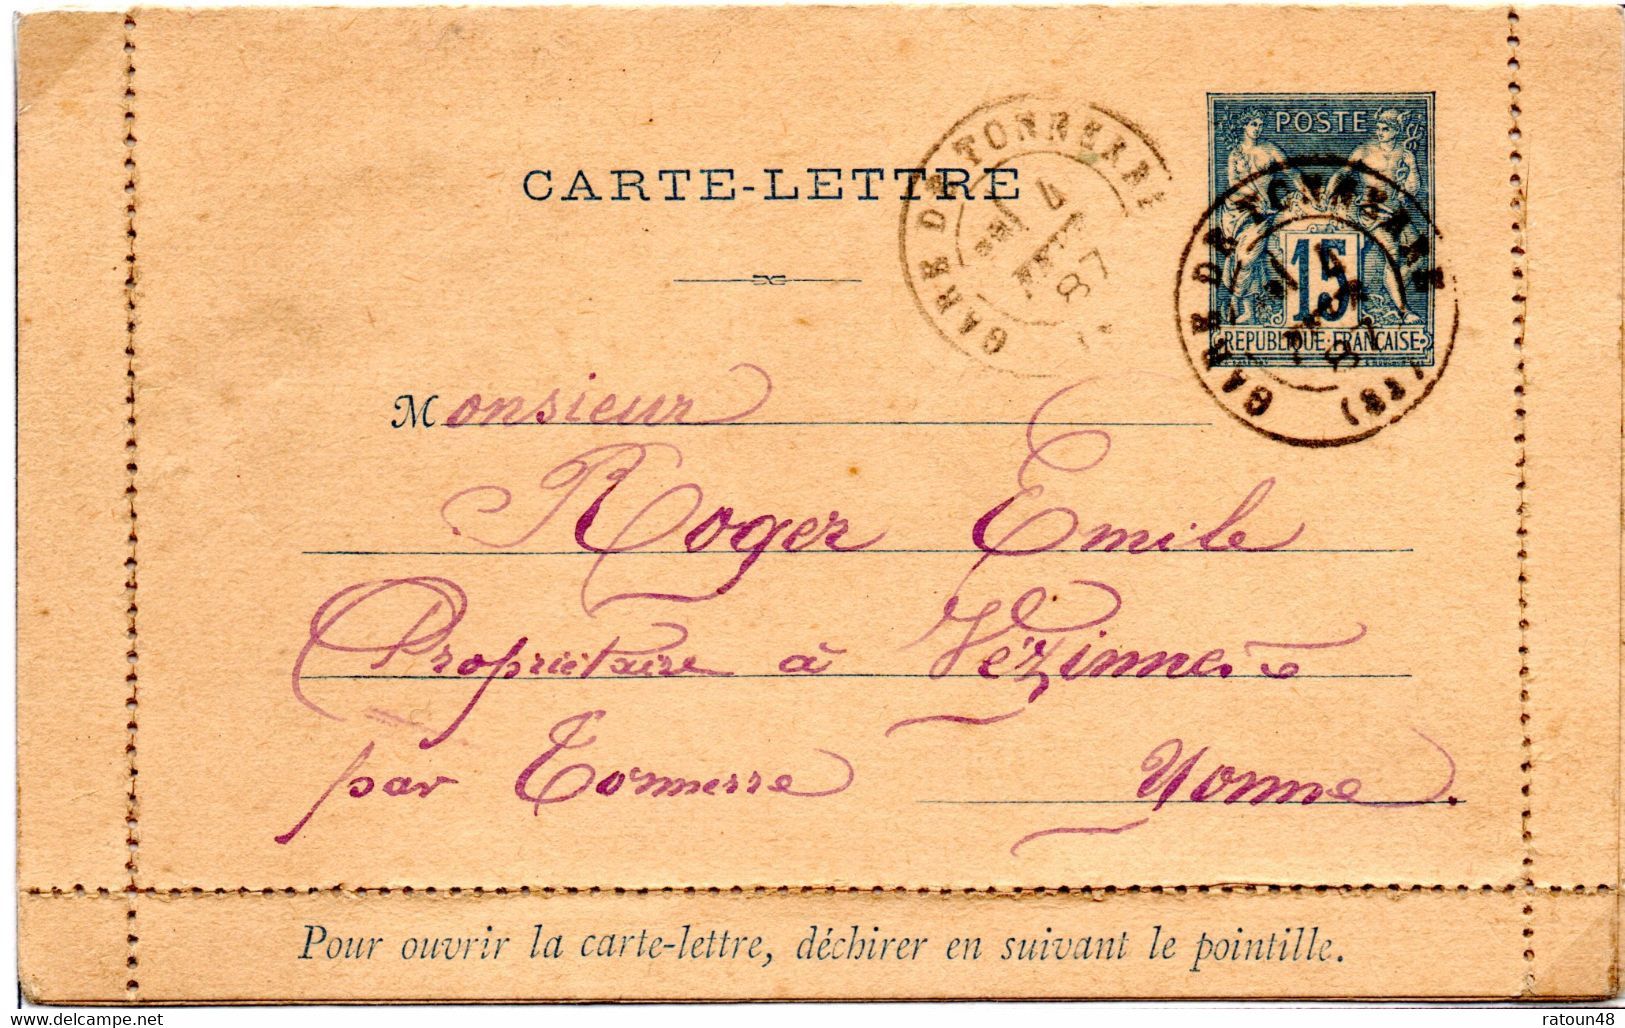 POSTE
CARTE-LETTRE
15
REPUBLIQUE FRANCAISE
GARE DE TONNERRE
4
87
GARE DE TONNERRE
4
87
Monsieur
Roger Emile
Propriétaire à Vézinnes
par Tonnerre Yonne.
Pour ouvrir la carte-lettre, déchirer en suivant le pointillé.
delcampe.net
ratoun48